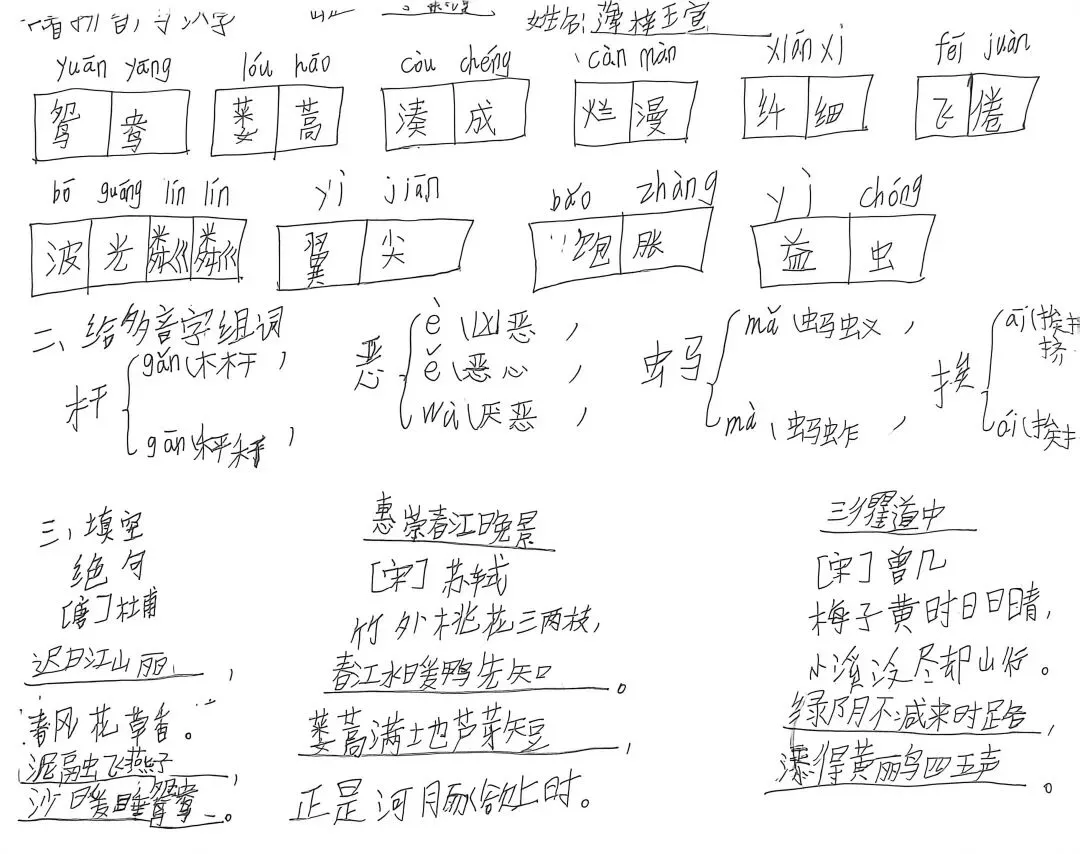 姓名:薄梓玉宣
yuān yāng lóu hāo còu chéng càn màn xiān xì fēi juàn
鸳 鸯 蒌 蒿 凑 成 烂 漫 纤 细 飞 倦
bō guāng lín lín yì jiān bǎo zhàng yì chóng
波 光 粼 粼 翼 尖 饱 胀 益 虫
二、给多音字组词
杆 gǎn(木杆, gān(秤杆,
恶 è(凶恶, ě(恶心, wù(厌恶,
蚂 mǎ(蚂蚁, mà(蚂蚱,
挨 āi(挨挨挤, ái(挨
三、填空
绝句
[唐]杜甫
迟日江山丽,
春风花草香。
泥融飞燕子,
沙暖睡鸳鸯。
惠崇春江晚景
[宋]苏轼
竹外桃花三两枝,
春江水暖鸭先知。
蒌蒿满地芦芽短,
正是河豚欲上时。
三衢道中
[宋]曾几
梅子黄时日日晴,
小溪泛尽却山行。
绿阴不减来时路,
添得黄鹂四五声。